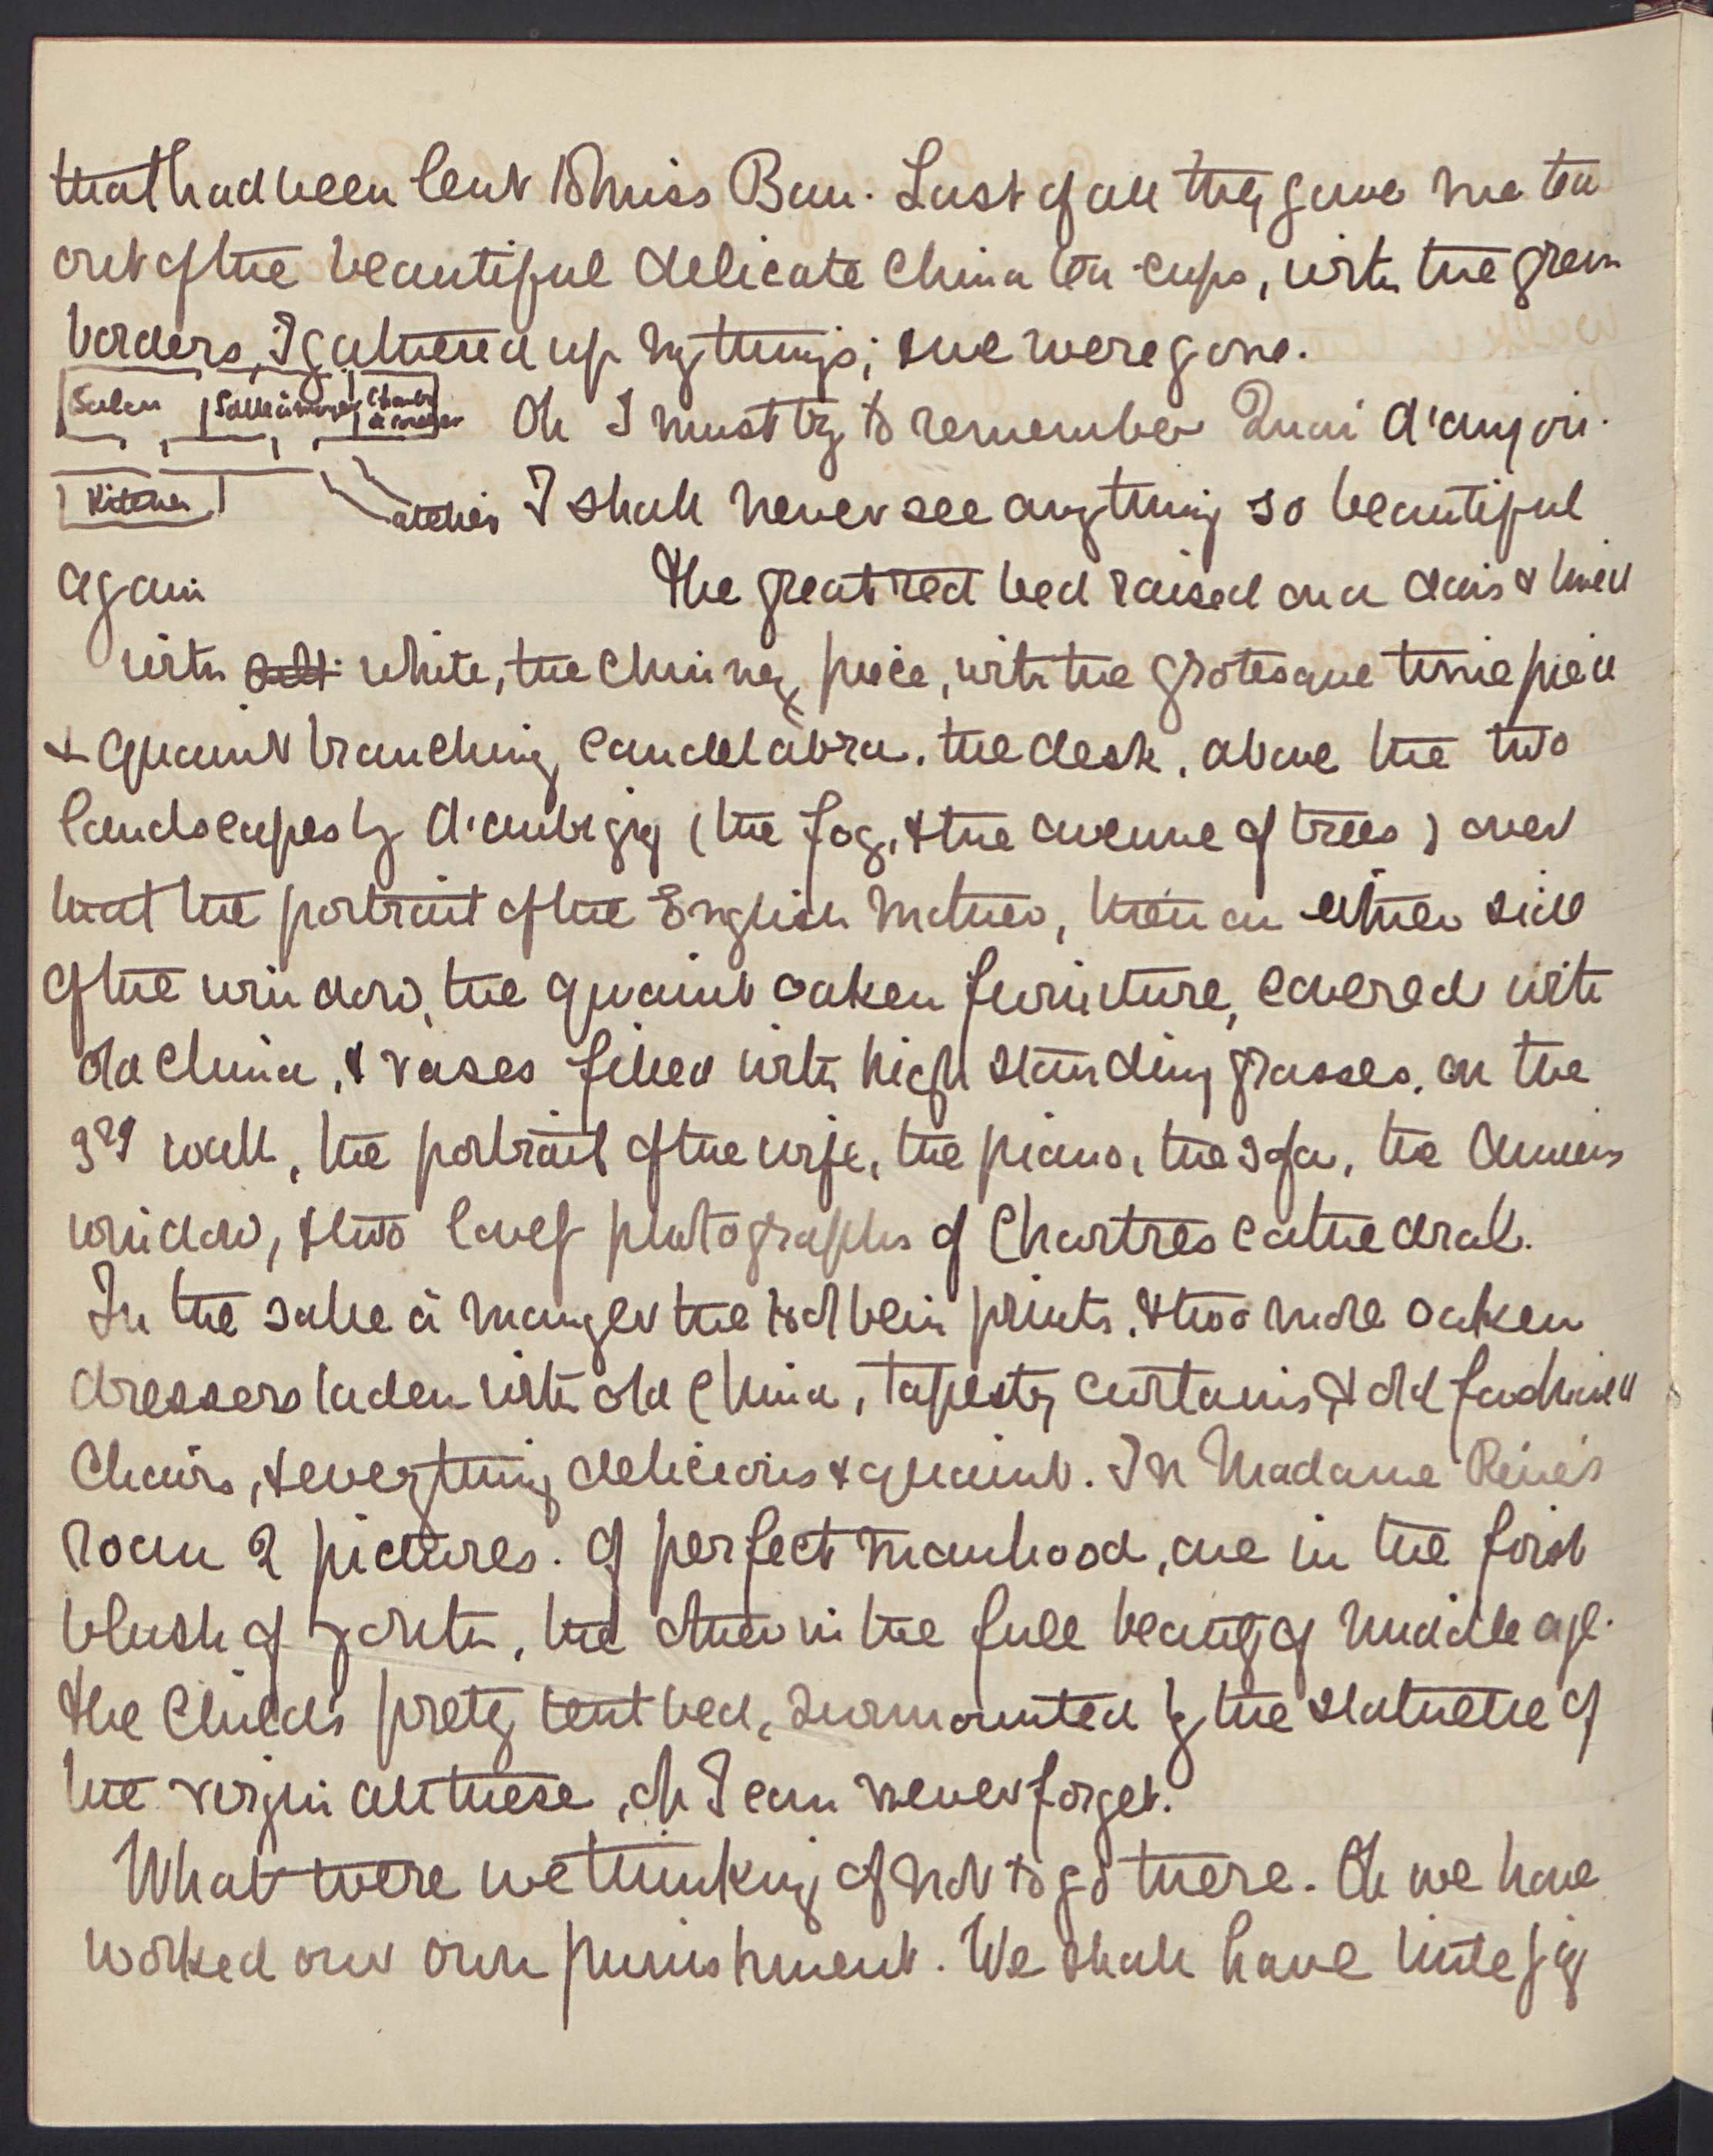 that had been lent to Miss Bau. Last of all they gave me tea
out of the beautiful delicate China tea-cups, with the green
borders, I gathered up my things; & we were gone.
Salon Salle à manger Chambre à manger
Oh I must try to remember Quai d'anjou.
Kitchen atelier
I shall never see anything so beautiful
again The great red bed raised on a dais & lined
with white, the chimney piece, with the grotesque time piece
& quaint branching candelabra. the desk, above the two
landscapes by d'aubigny (the fog, & the avenue of trees) over
that the portrait of the English Mother, then on either side
of the window, the quaint oaken furniture, covered with
old china, & vases filled with high standing grasses. on the
3rd wall, the portrait of the wife, the piano, the sofa, the Amiens
window, & two lovely photographs of Chartres cathedral.
In the salle à manger the Holbein prints, & two more oaken
dressers laden with old China, tapestry curtains & old fashioned
Chairs, & everything delicious & quaint. In Madame Reine's
room 2 pictures. of perfect manhood, one in the first
blush of youth, the other in the full beauty of middle age.
The Child's pretty tent bed, surmounted by the statuette of
the virgin all these, oh I can never forget.
What were we thinking of not to go there. Oh we have
worked our own punishment. We shall have little joy